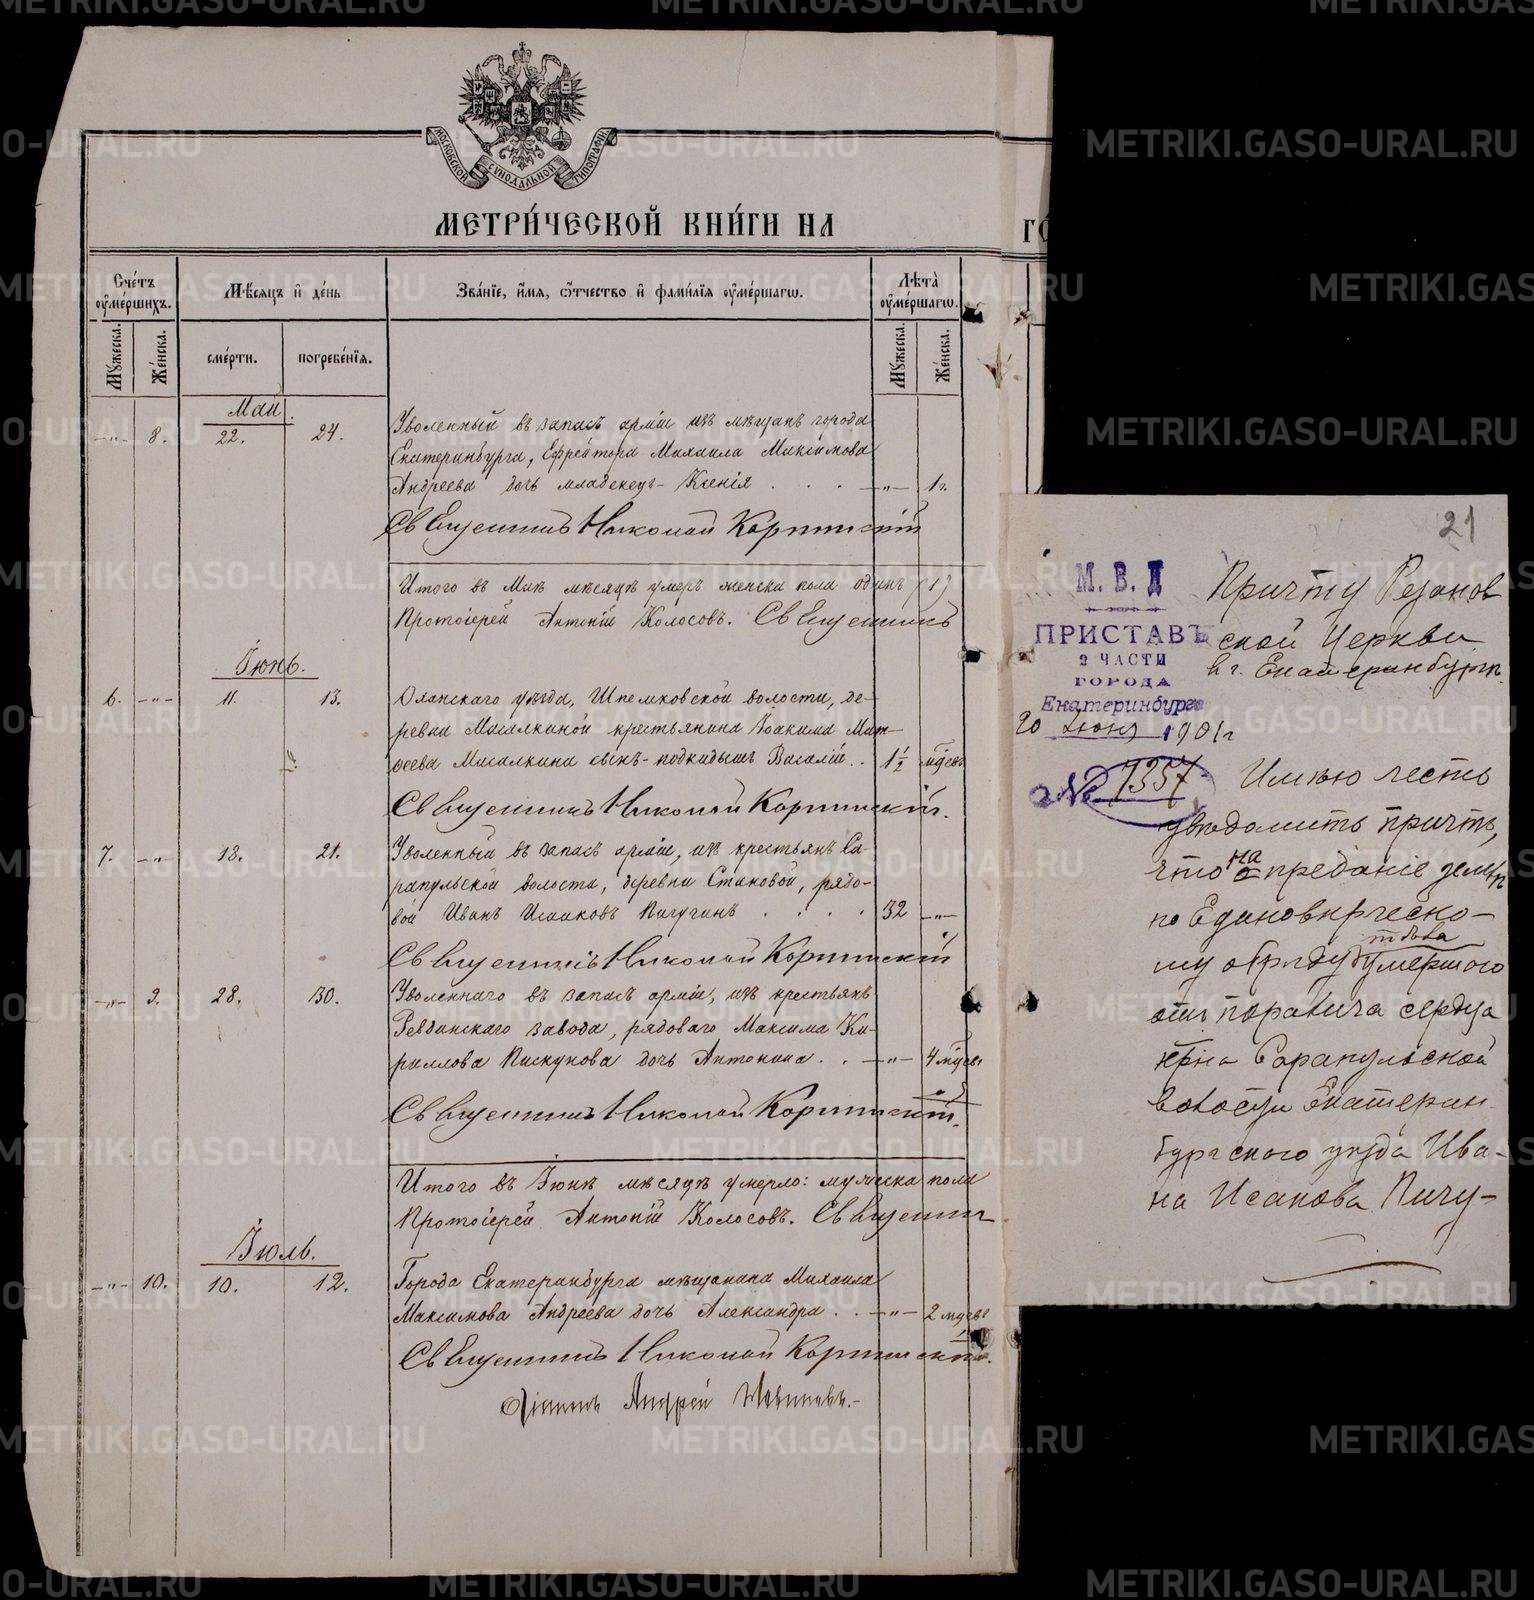 МОСКОВСКОЙ СѴНОДАЛЬНОЙ ТИПОГРАФІИ
МЕТРИ́ЧЕСКОЙ КНИ́ГИ НА
ГО́
Сче́тъ ᲂу҆ме́ршихъ.
Мѣ́сяцъ и҆ де́нь
Зва́нїе, и҆́мя, ѻ҆́тчество и҆ фами́лїя ᲂу҆ме́ршагѡ.
Лѣ́та ᲂу҆ме́ршагѡ.
Му́жеска.
Же́нска.
сме́рти.
погребе́нїя.
Му́жеска.
Же́нска.
Май.
-"- 8. 22. 24. Уволенный въ запасъ арміи изъ мѣщанъ города
Екатеринбурга, Ефрейтора Михаила Максимова
Андреева дочь младенецъ - Ксенія . . . -"- 1 г.
Священникъ Николай Корминскій
Итого въ Маѣ мѣсяцѣ умеръ женска пола одинъ (1)
Протоіерей Антоній Колосовъ. Священникъ
Іюнь.
6. -"- 11. 13. Оханскаго уѣзда, Шлемковской волости, де-
ревни Мисалкиной крестьянина Іоакима Мат-
ѳеева Мисалкина сынъ-подкидышъ Василій . . 1½ мѣсяц
Священникъ Николай Корминскій.
7. -"- 18. 21. Уволенный въ запасъ арміи, изъ крестьянъ Са-
рапульской волости, деревни Становой, рядо-
вой Иванъ Исааковъ Пичугинъ . . . . 32 -"-
Священникъ Николай Корминскій
-"- 9. 28. 30. Уволеннаго въ запасъ арміи, изъ крестьянъ
Ревдинскаго завода, рядоваго Максима Ки-
риллова Пискунова дочь Антонина . . -"- 4 мѣсяц
Священникъ Николай Корминскій.
Итого въ Іюнѣ мѣсяцѣ умерло: мужеска пола
Протоіерей Антоній Колосовъ. Священник
Іюль.
-"- 10. 10. 12. Города Екатеринбурга мѣщанина Михаила
Максимова Андреева дочь Александра . . -"- 2 мѣсяц
Священникъ Николай Корминскій.
Діаконъ Андрей Новиковъ.-
21
М. В. Д
ПРИСТАВЪ
2 ЧАСТИ
ГОРОДА
Екатеринбурга
20 Июня 1901 г
№ 1357
Причту Рязанов
ской Церкви
в г. Екатеринбургѣ.
Имѣю честь
увѣдомить причтъ,
что на преданіе землѣ
по Единовѣрческо-
му обряду тѣла умершого
отъ паралича сердца
кр-на Сарапульской
волости Екатерин
бургского уѣзда Ива-
на Исакова Пичу-
METRIKI.GASO-URAL.RU